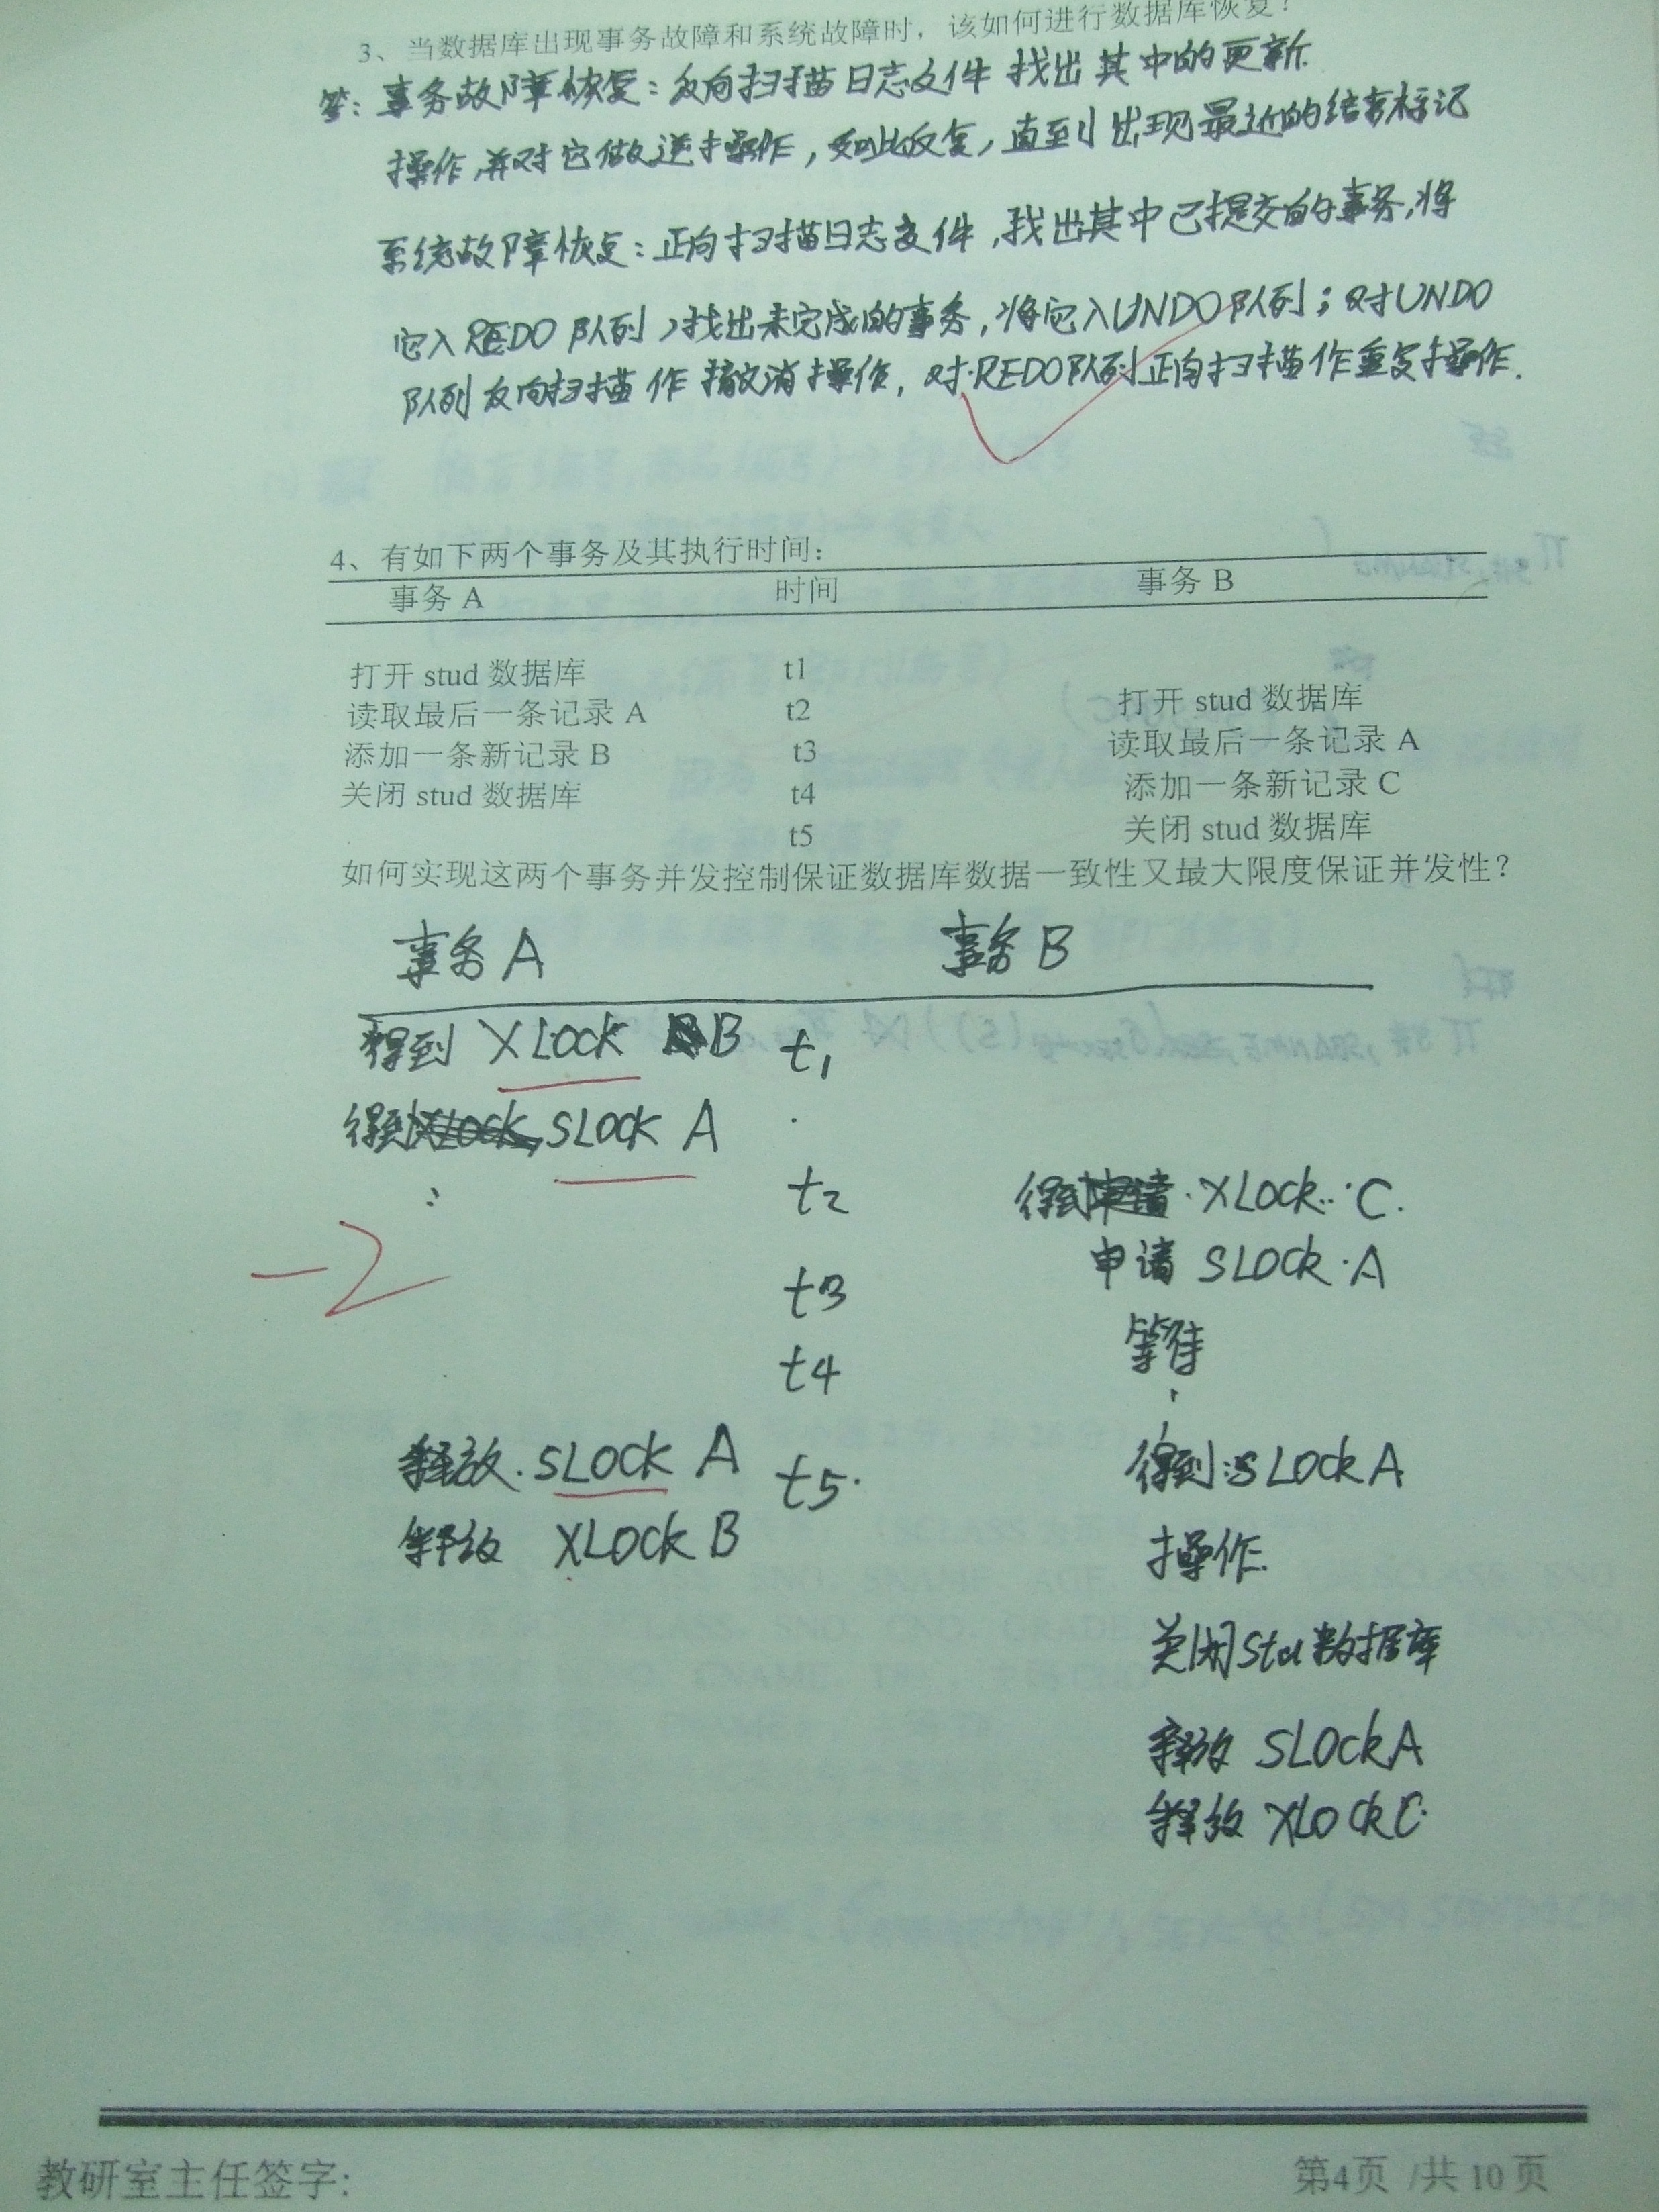 3、当数据库出现事务故障和系统故障时，该如何进行数据库恢复？
答：事务故障恢复：反向扫描日志文件 找出其中的更新
操作，并对它做逆操作，如此反复，直到出现最近的结束标记
系统故障恢复：正向扫描日志文件，找出其中已提交的事务，将
它入REDO队列，找出未完成的事务，将它入UNDO队列；对UNDO
队列反向扫描作撤消操作，对REDO队列正向扫描作重复操作.
4、有如下两个事务及其执行时间：
事务 A 时间 事务 B
打开 stud 数据库 t1
读取最后一条记录 A t2 打开 stud 数据库
添加一条新记录 B t3 读取最后一条记录 A
关闭 stud 数据库 t4 添加一条新记录 C
t5 关闭 stud 数据库
如何实现这两个事务并发控制保证数据库数据一致性又最大限度保证并发性？
事务 A 事务 B
得到 XLock B t1
得到 SLock A
t2 得到 XLock C.
申请 SLock A
-2
t3 等待
t4
释放 SLock A t5 得到 SLock A
释放 XLock B
操作.
关闭 stu 数据库
释放 SLock A
释放 XLock C
教研室主任签字:
第4页 /共 10 页